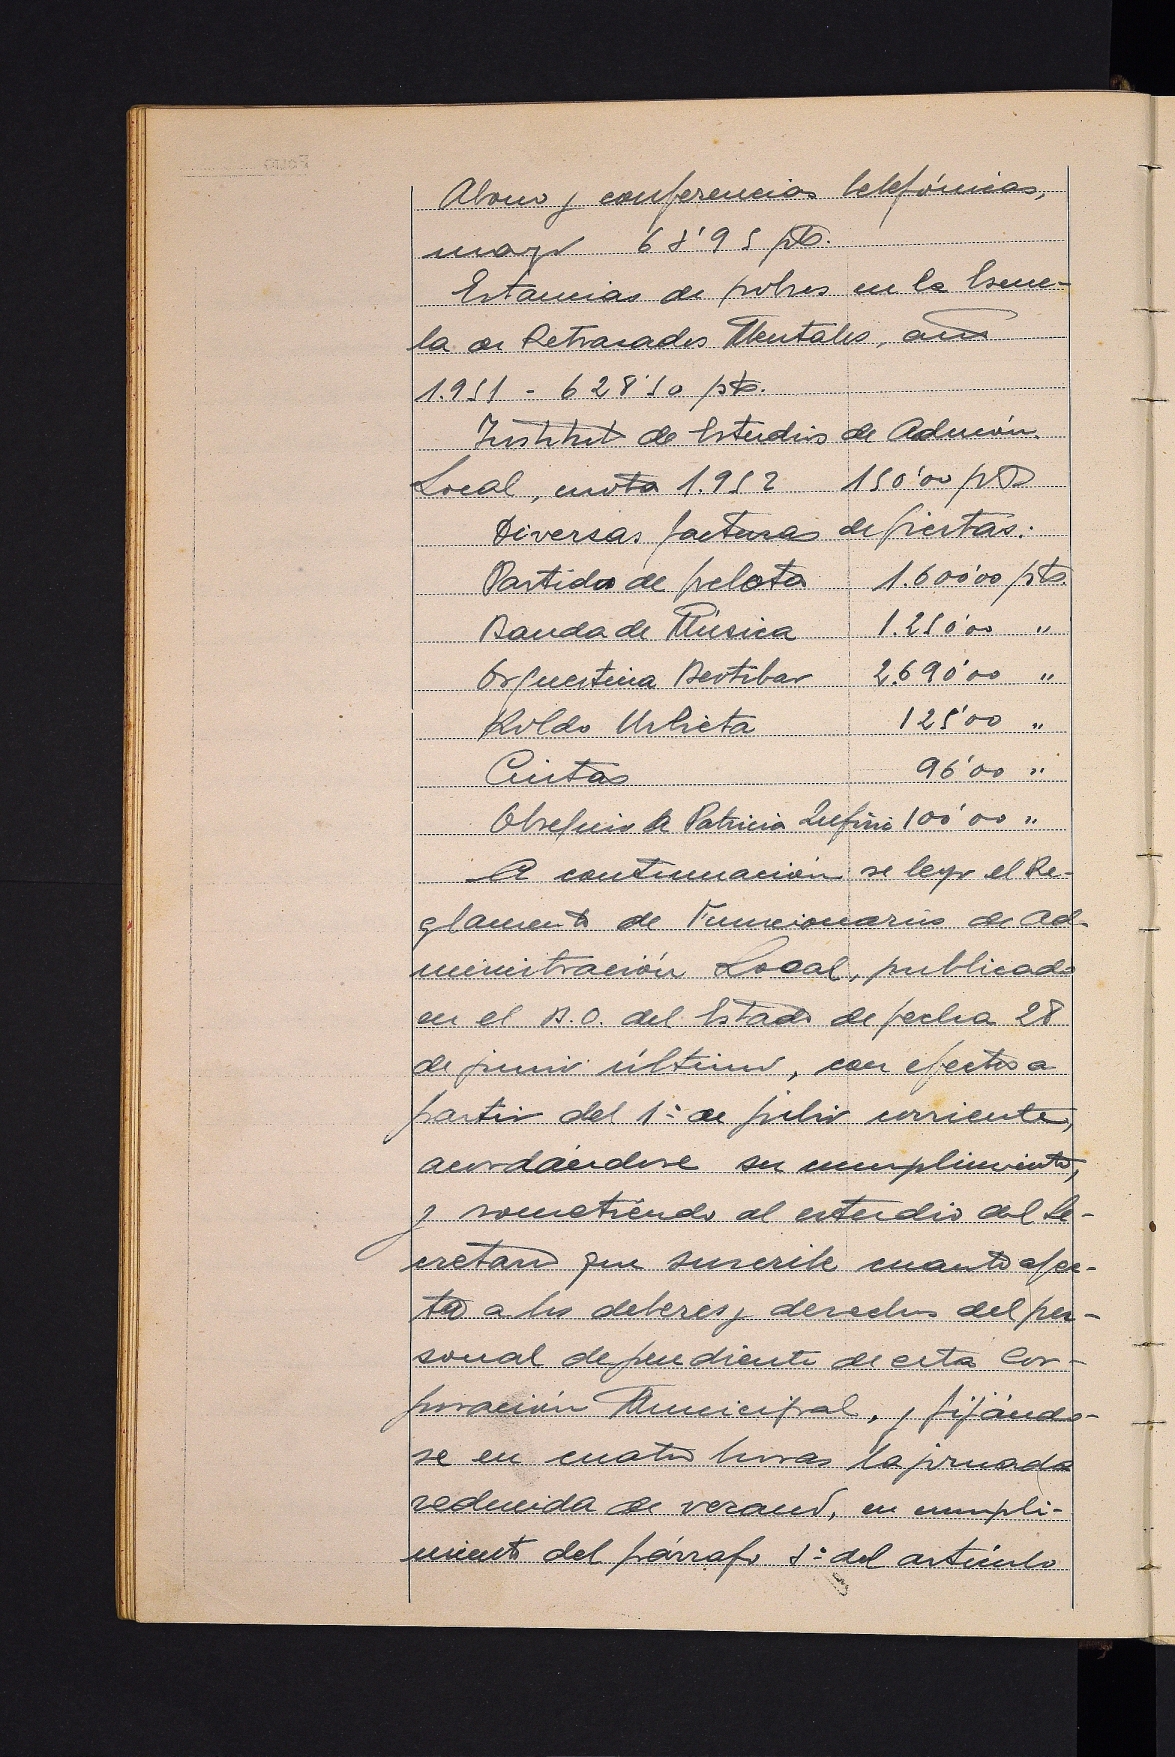 Abono y conferencias telefónicas,
mayo 68'95 pts.
Estancias de pobres en la Escue-
la de Retrasados Mentales, año
1.951 - 628'50 pts.
Instituto de Estudios de Admión.
Local, cuota 1.952 150'00 pts
Diversas facturas de fiestas:
Partido de pelota 1.600'00 pts.
Banda de Música 1.250'00 "
Orquestina Bertibar 2.690'00 "
Koldo Urbieta 125'00 "
Cintas 96'00 "
Obsequio a Patricia 100'00 "
A continuación se leyo el Re-
glamento de Funcionarios de Ad-
ministración Local, publicado
en el B.O. del Estado de fecha 28
de junio último, con efectos a
partir del 1º de julio corriente,
acordándose su cumplimiento,
y sometiendo al estudio del Se-
cretario que suscribe cuanto afec-
ta a los deberes y derechos del per-
sonal dependiente de esta Cor-
poración Municipal, y fijándo-
se en cuatro horas la jornada
reducida de verano, en cumpli-
miento del párrafo del artículo
Folio